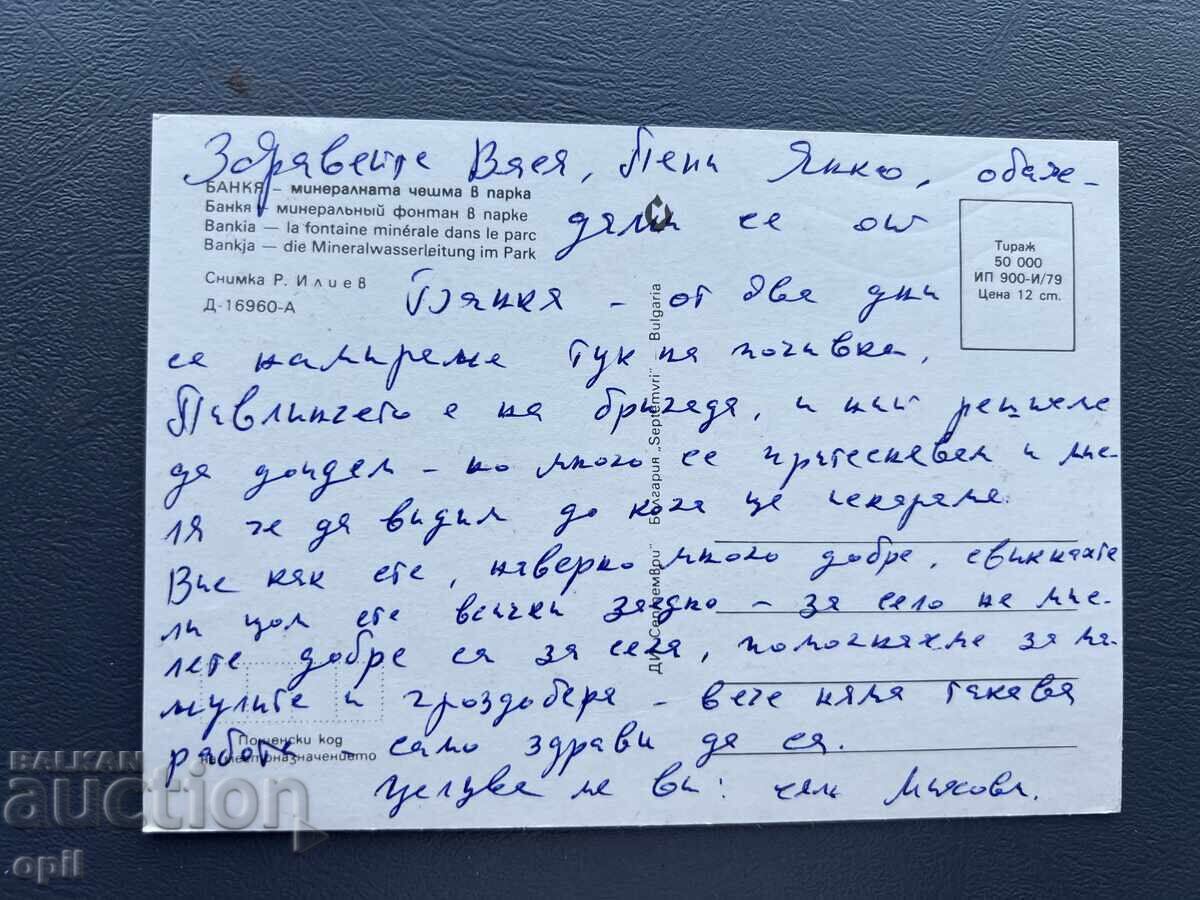 Здравейте Вяся, Пени Янко, обаж-
дяме се от
БАНКЯ — минералната чешма в парка
Банкя — минеральный фонтан в парке
Bankia — la fontaine minérale dans le parc
Bankja — die Mineralwasserleitung im Park
Снимка Р. Илиев
Д-16960-А
Тираж
50 000
ИП 900-И/79
Цена 12 ст.
Банкя - от два дни
се намираме тук на почивка,
Павлинчето е на бригада, и ний решихме
да дойдем - но много се притесняваме и мис-
ля че да видим до кога ще чекараме.
Вие как сте, наверно много добре, свикнахте
ли щом сте всички заедно - за село не мис-
лете добре са за сега, помогнахме за ма-
мулите и гроздобера - вече няма такава
работа - само здрави да са.
Целуваме ви: чам Михови.
ДИ „Септември" България „Septemvri" — Bulgaria
Пощенски код
на местоназначението
BALKAN
auction
opil